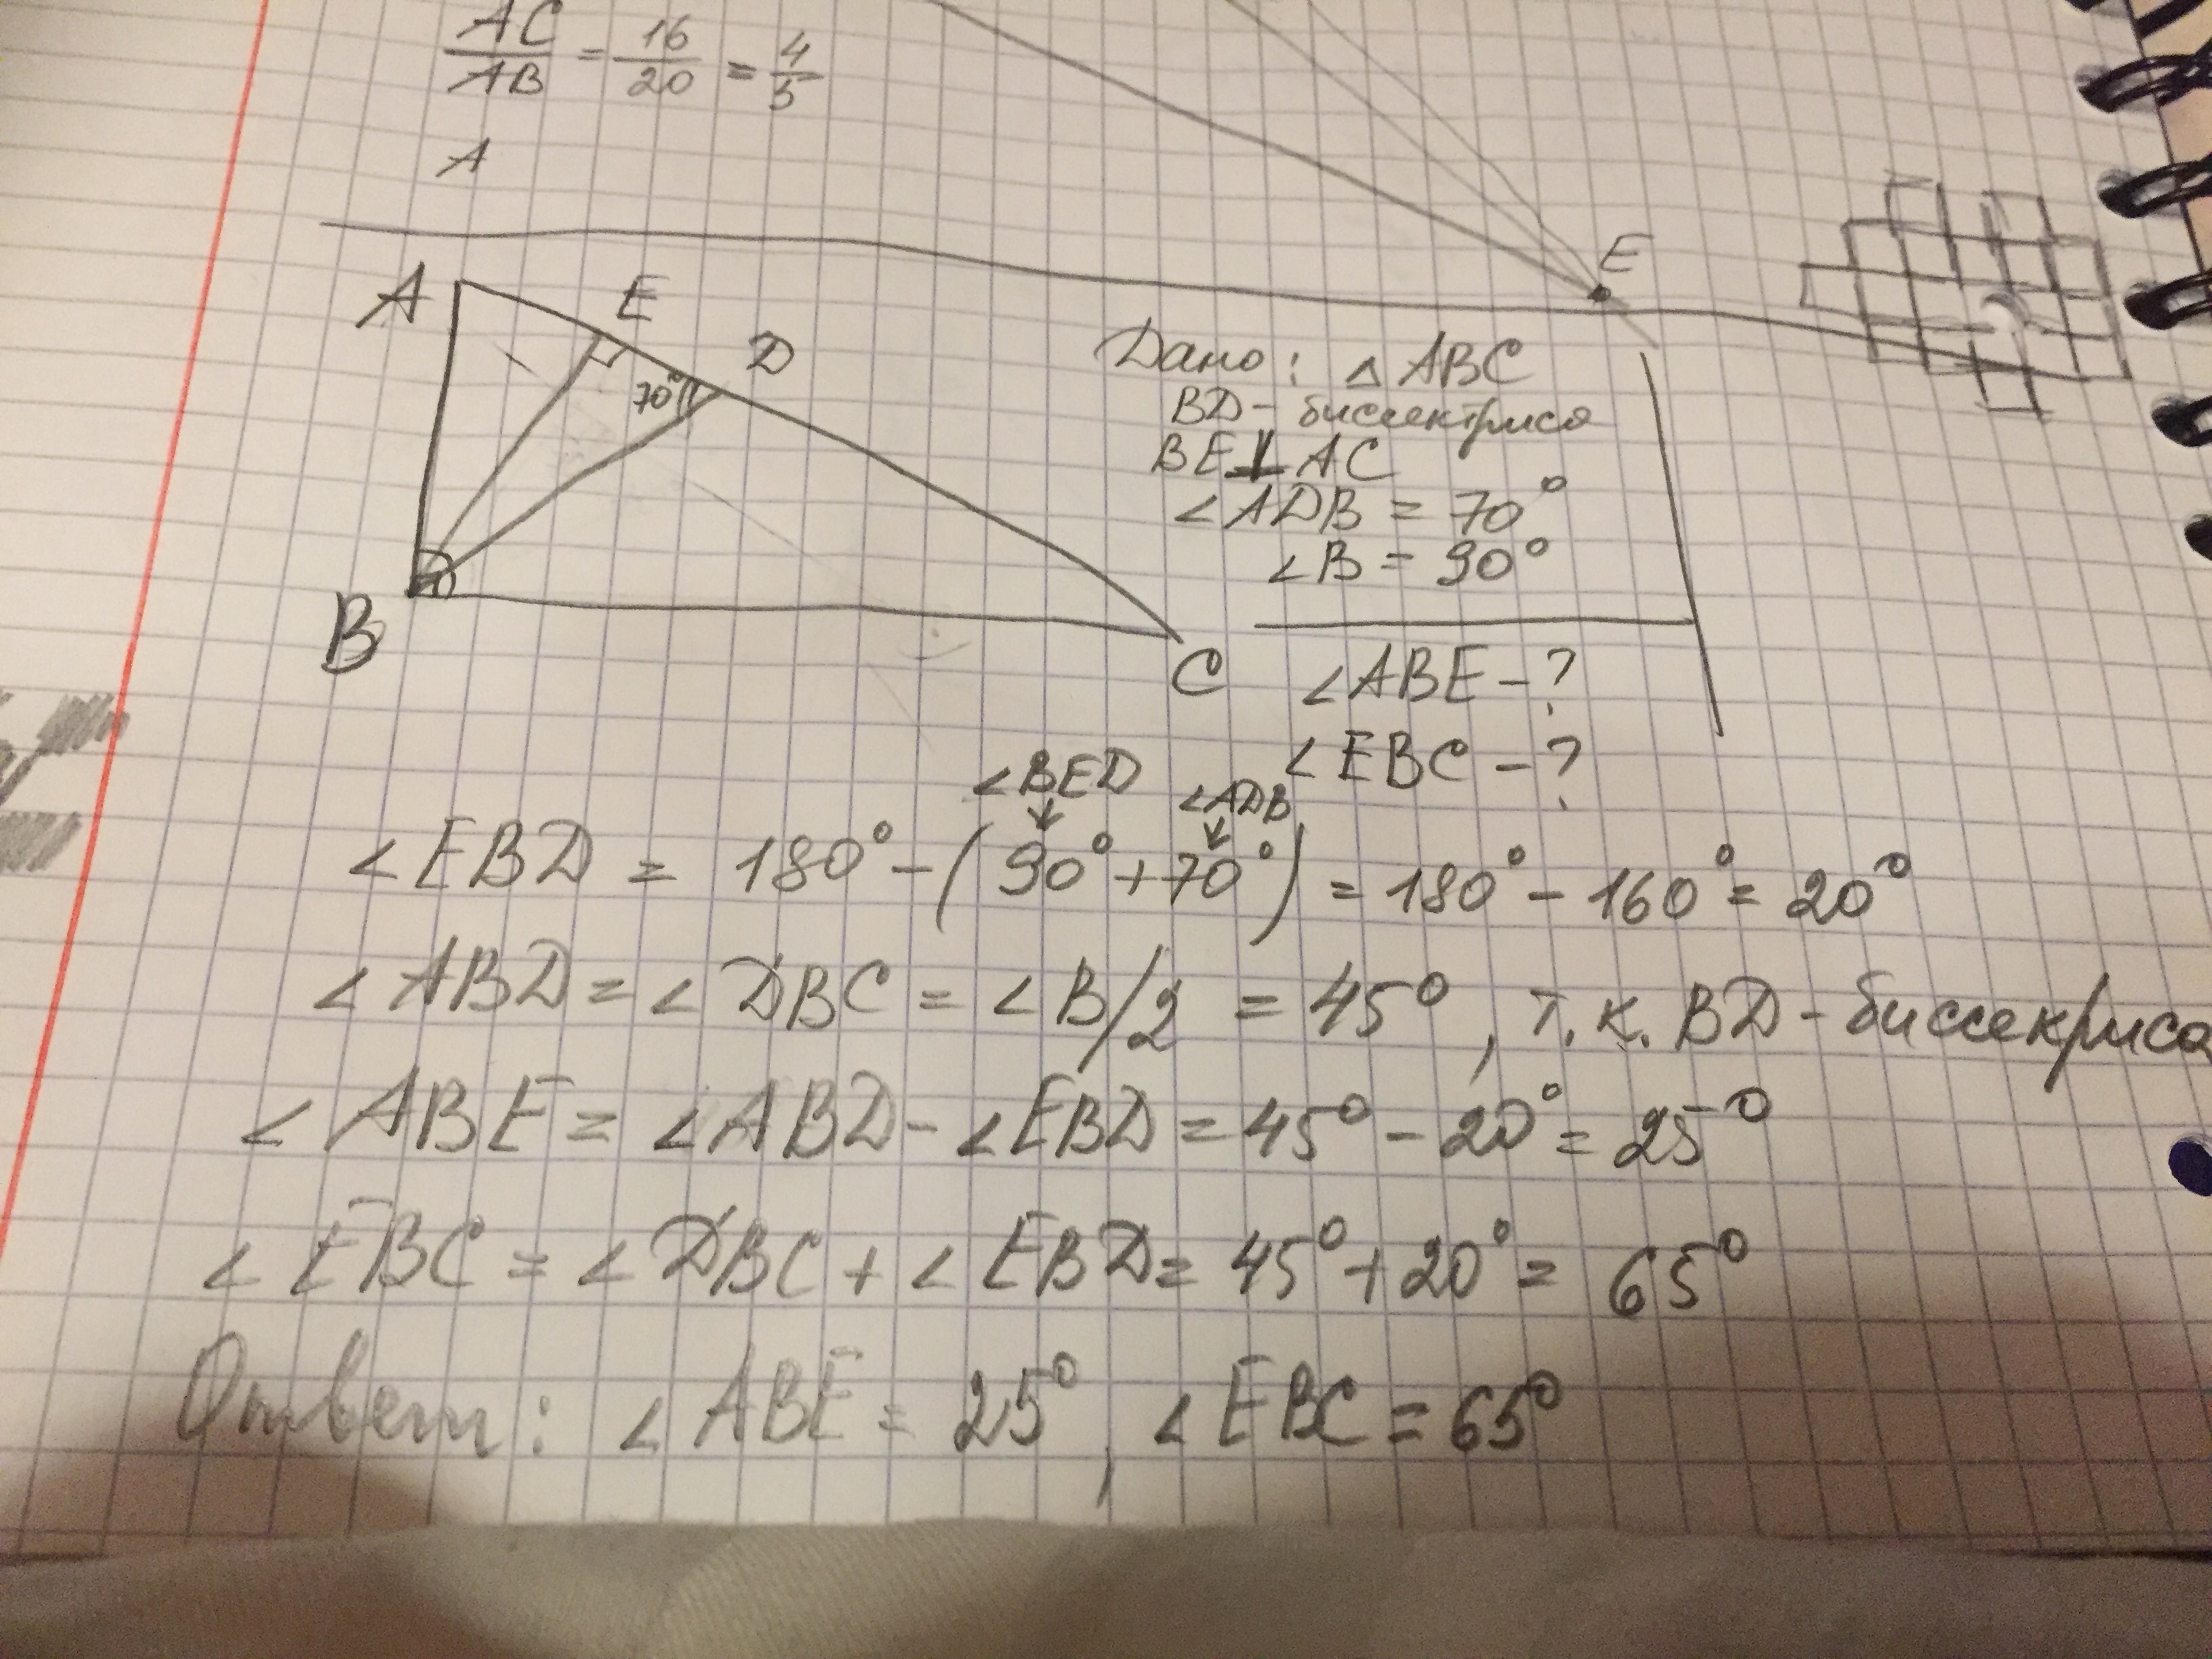 AC/AB = 16/20 = 4/5
A
E
A
E
D
70°
B
C
Дано: △ ABC
BD - биссектриса
BE ⊥ AC
∠ADB = 70°
∠B = 90°
∠ABE - ?
∠EBC - ?
∠BED ∠ADB
∠EBD = 180° - (90° + 70°) = 180° - 160° = 20°
∠ABD = ∠DBC = ∠B/2 = 45°, т.к. BD - биссекриса
∠ABE = ∠ABD - ∠EBD = 45° - 20° = 25°
∠EBC = ∠DBC + ∠EBD = 45° + 20° = 65°
Ответ: ∠ABE = 25°, ∠EBC = 65°